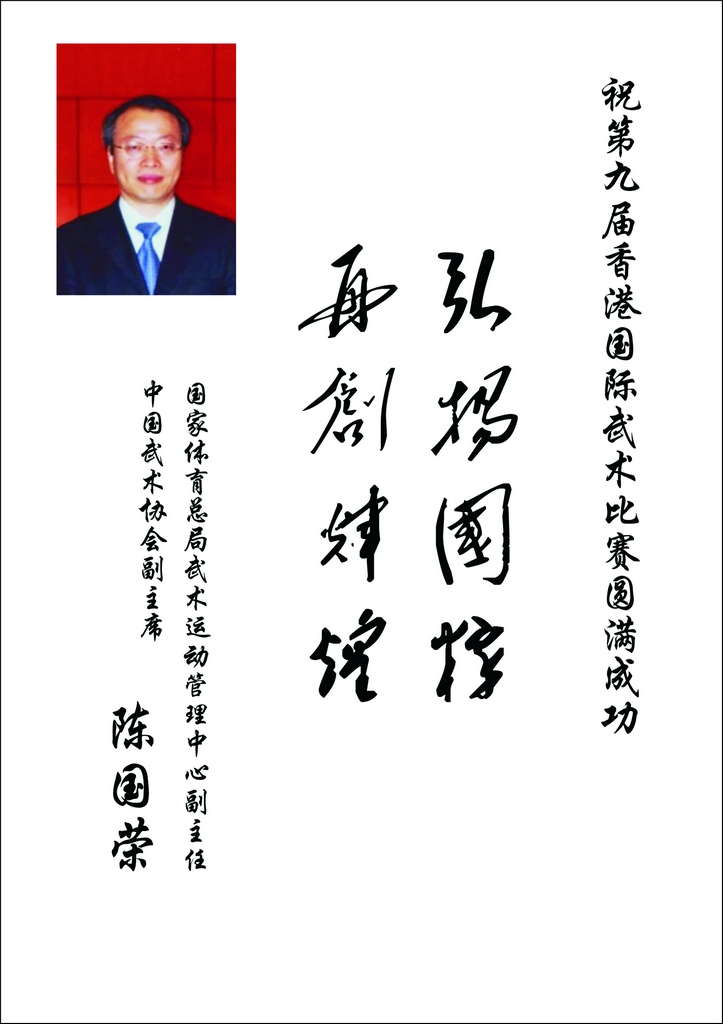 祝第九届香港国际武术比赛圆满成功
弘揚國粹
再創輝煌
国家体育总局武术运动管理中心副主任
中国武术协会副主席
陈国荣